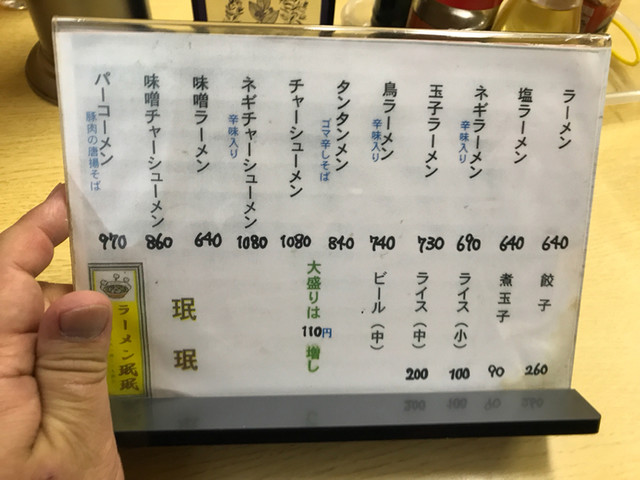 ラーメン 640
塩ラーメン 640
ネギラーメン 辛味入り 690
玉子ラーメン 730
鳥ラーメン 辛味入り 740
タンタンメン ゴマ辛しそば 840
チャーシューメン 1080
ネギチャーシューメン 辛味入り 1080
味噌ラーメン 640
味噌チャーシューメン 860
パーコーメン 豚肉の唐揚そば 970
餃子 260
煮玉子 90
ライス(小) 100
ライス(中) 200
ビール(中)
大盛りは 110円 増し
珉珉
ラーメン珉珉